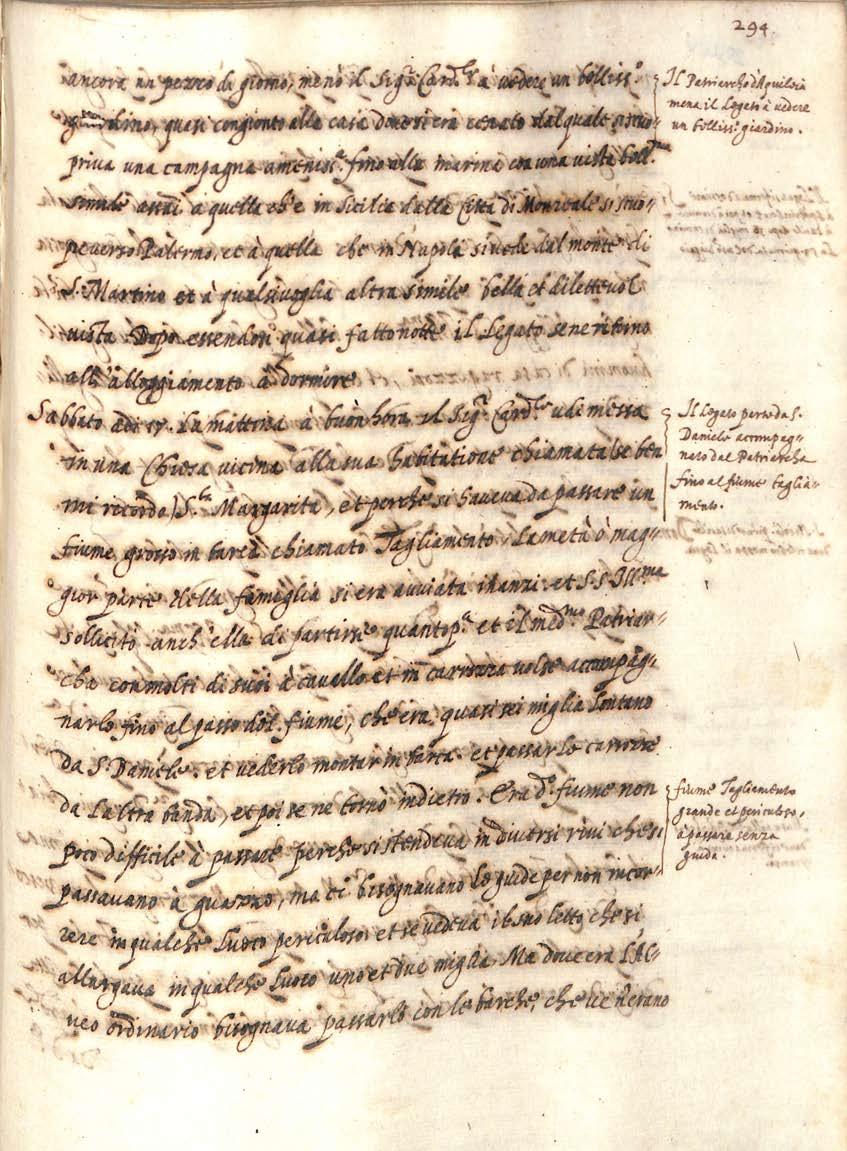 294
ancora un pezzo di giorno, menò il Sig.r Card.le à vedere un belliss.o
giardino, quasi congionto alla casa dove si era cenato dal quale si scuo-
priva una campagna ameniss.a fino alla marina con una vista bell.ma
simile assai à quella ch'è in Sicilia dalla Città di Monreale si scuo-
pe verso Palermo, et à quella che in Napoli si vede dal monte di
S. Martino et à qualsivoglia altra simile bella et dilettevol
vista Dopo essendosi quasi fatto notte il Legato se ne ritornò
all'alloggiamento à dormire
Sabbato adi la mattina à buon hora il Sig.r Card.le udì messa
in una Chiesa vicina alla sua habitatione chiamata (se ben
mi recordo) S.ta Margarita, et perche si haveva da passare un
fiume grosso in barca chiamato Tagliamento, la metà ò mag-
gior parte della fameglia si era avviata inanzi et S.S. Ill.ma
sollicitò anch'ella di partirsi quanto p.a et il med.mo Patriar-
cha con molti di suoi à cavallo et in carrozza volse accompag-
narlo fino al passo del fiume, che era quasi sei miglia lontano
da S. Daniele et vederlo montar in barca et passar le carrozze
da l'altra banda, et poi se ne tornò indietro. Era d.o fiume non
poco difficile à passare perche si stendeva in diversi rivi che si
passavano à guazzo, ma ci bisognavano le guide per non incor-
rere in qualche luoco periculoso et se vedeva il suo letto che si
allargava in qualche luoco uno et due miglia Ma dove era l'Al-
veo ordinario bisognava passarlo con le barche, che ve n'erano
Il Patriarcha d'Aquileia
mena il Legato à vedere
un belliss.o giardino.
Il Legato parte da S.
Daniele accompag-
nato dal Patriarcha
fino al fiume Taglia-
mento.
fiume Tagliamento
grande et periculoso,
à passare senza
guida.